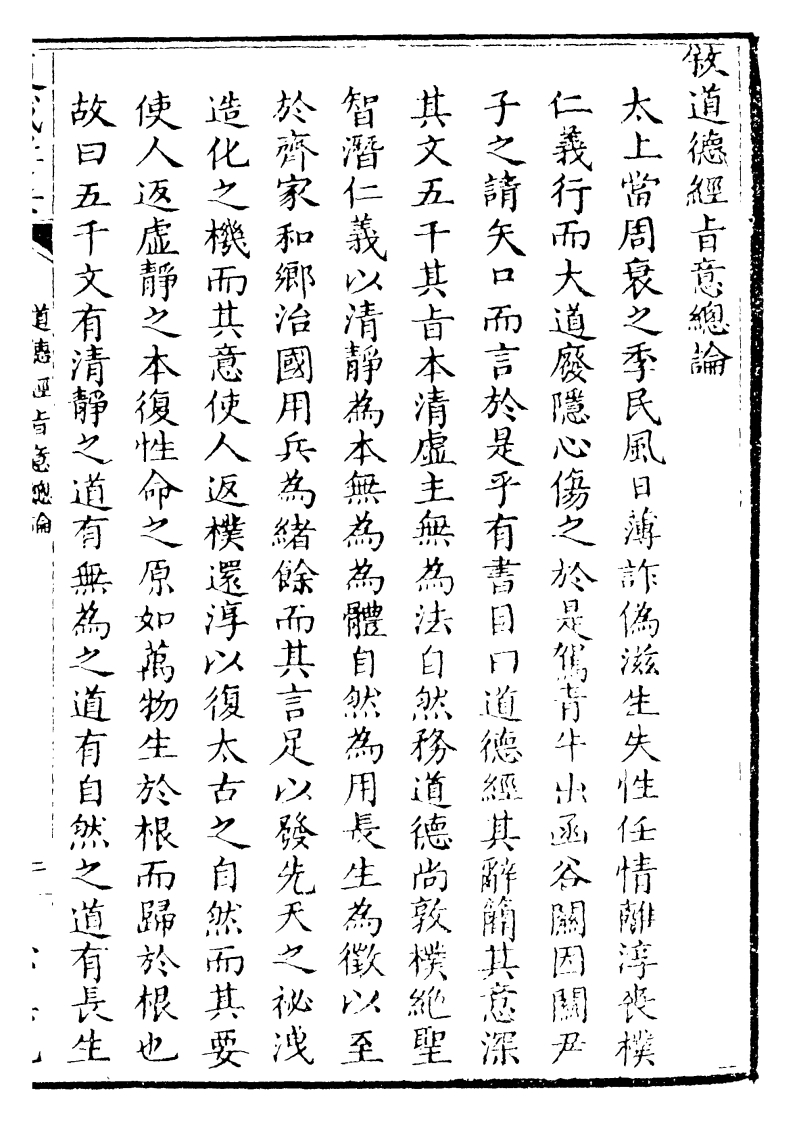 敘道德經旨意總論
太上當周衰之季民風日薄詐偽滋生失性任情離淳喪樸
仁義行而大道廢隱心傷之於是駕青牛出函谷關因關尹
子之請矢口而言於是乎有書目曰道德經其辭簡其意深
其文五千其旨本清虛主無為法自然務道德尚敦樸絕聖
智潛仁義以清靜為本無為為體自然為用長生為徵以至
於齊家和鄉治國用兵為緒餘而其言足以發先天之祕洩
造化之機而其意使人返樸還淳以復太古之自然而其要
使人返虛靜之本復性命之原如萬物生於根而歸於根也
故曰五千文有清靜之道有無為之道有自然之道有長生
道德經旨意總論